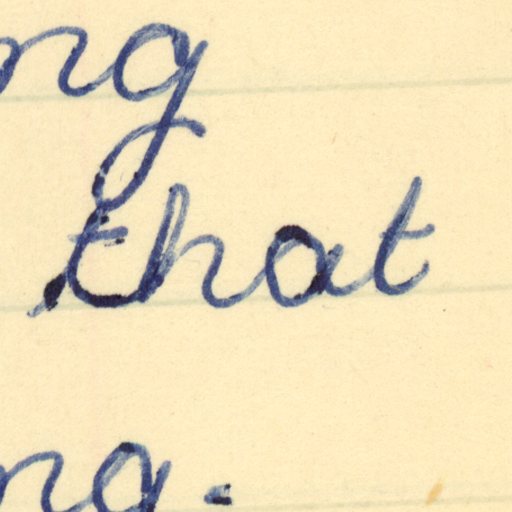 ng
that
ng.